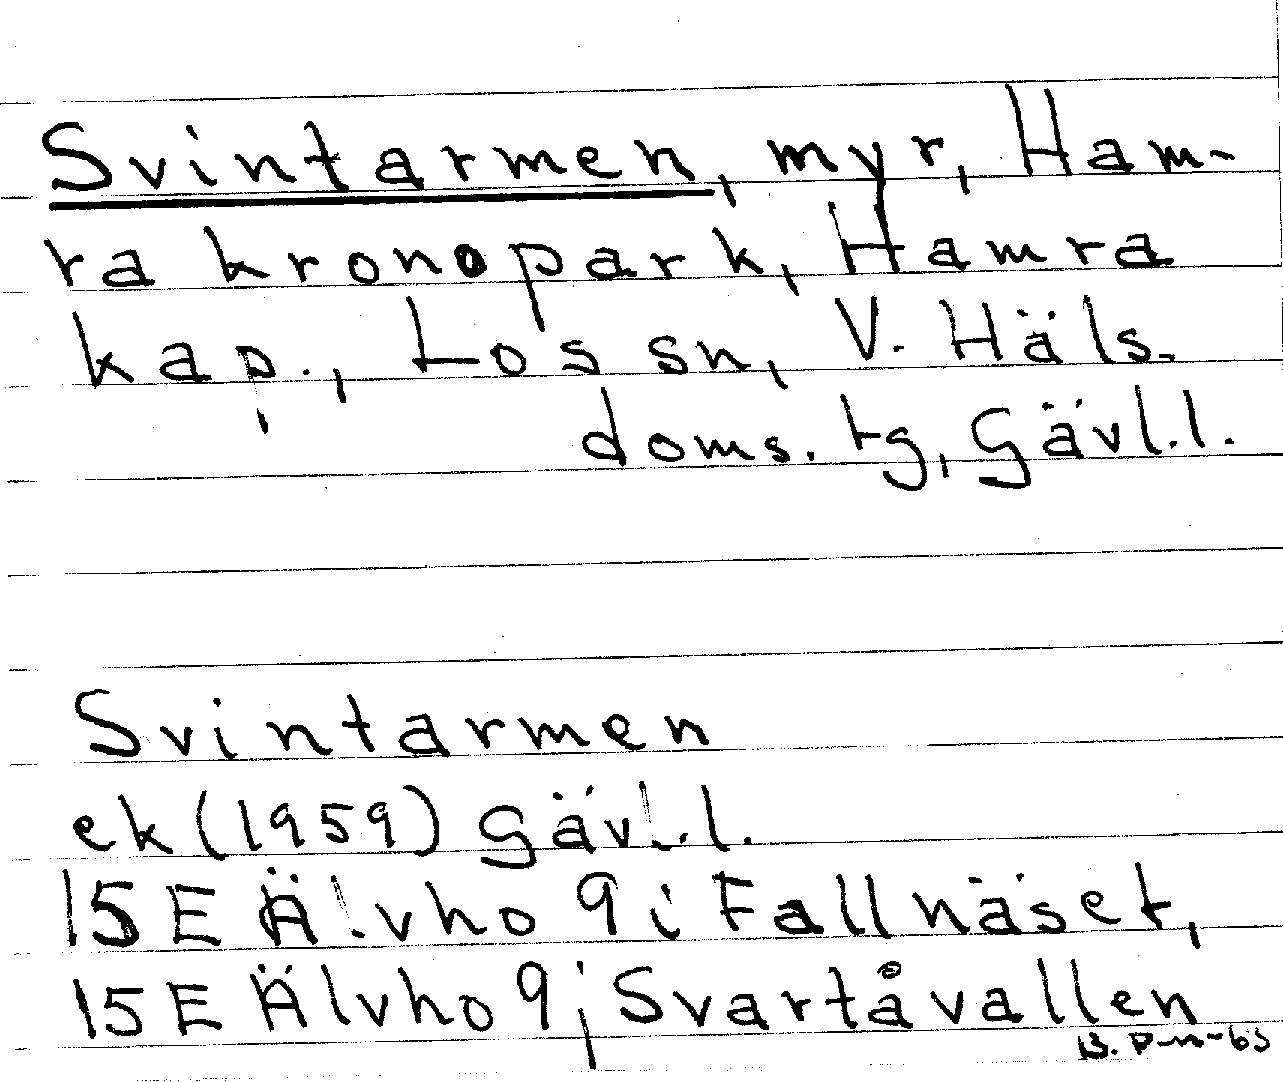 Svintarmen, myr, Ham-
ra kronopark, Hamra
kap., Los sn, V. Häls.
doms. tg, Gävl.l.
Svintarmen
ek (1959) Gävl.l.
15 E Älvho 9 i Fallnäset,
15 E Älvho 9 j Svartåvallen